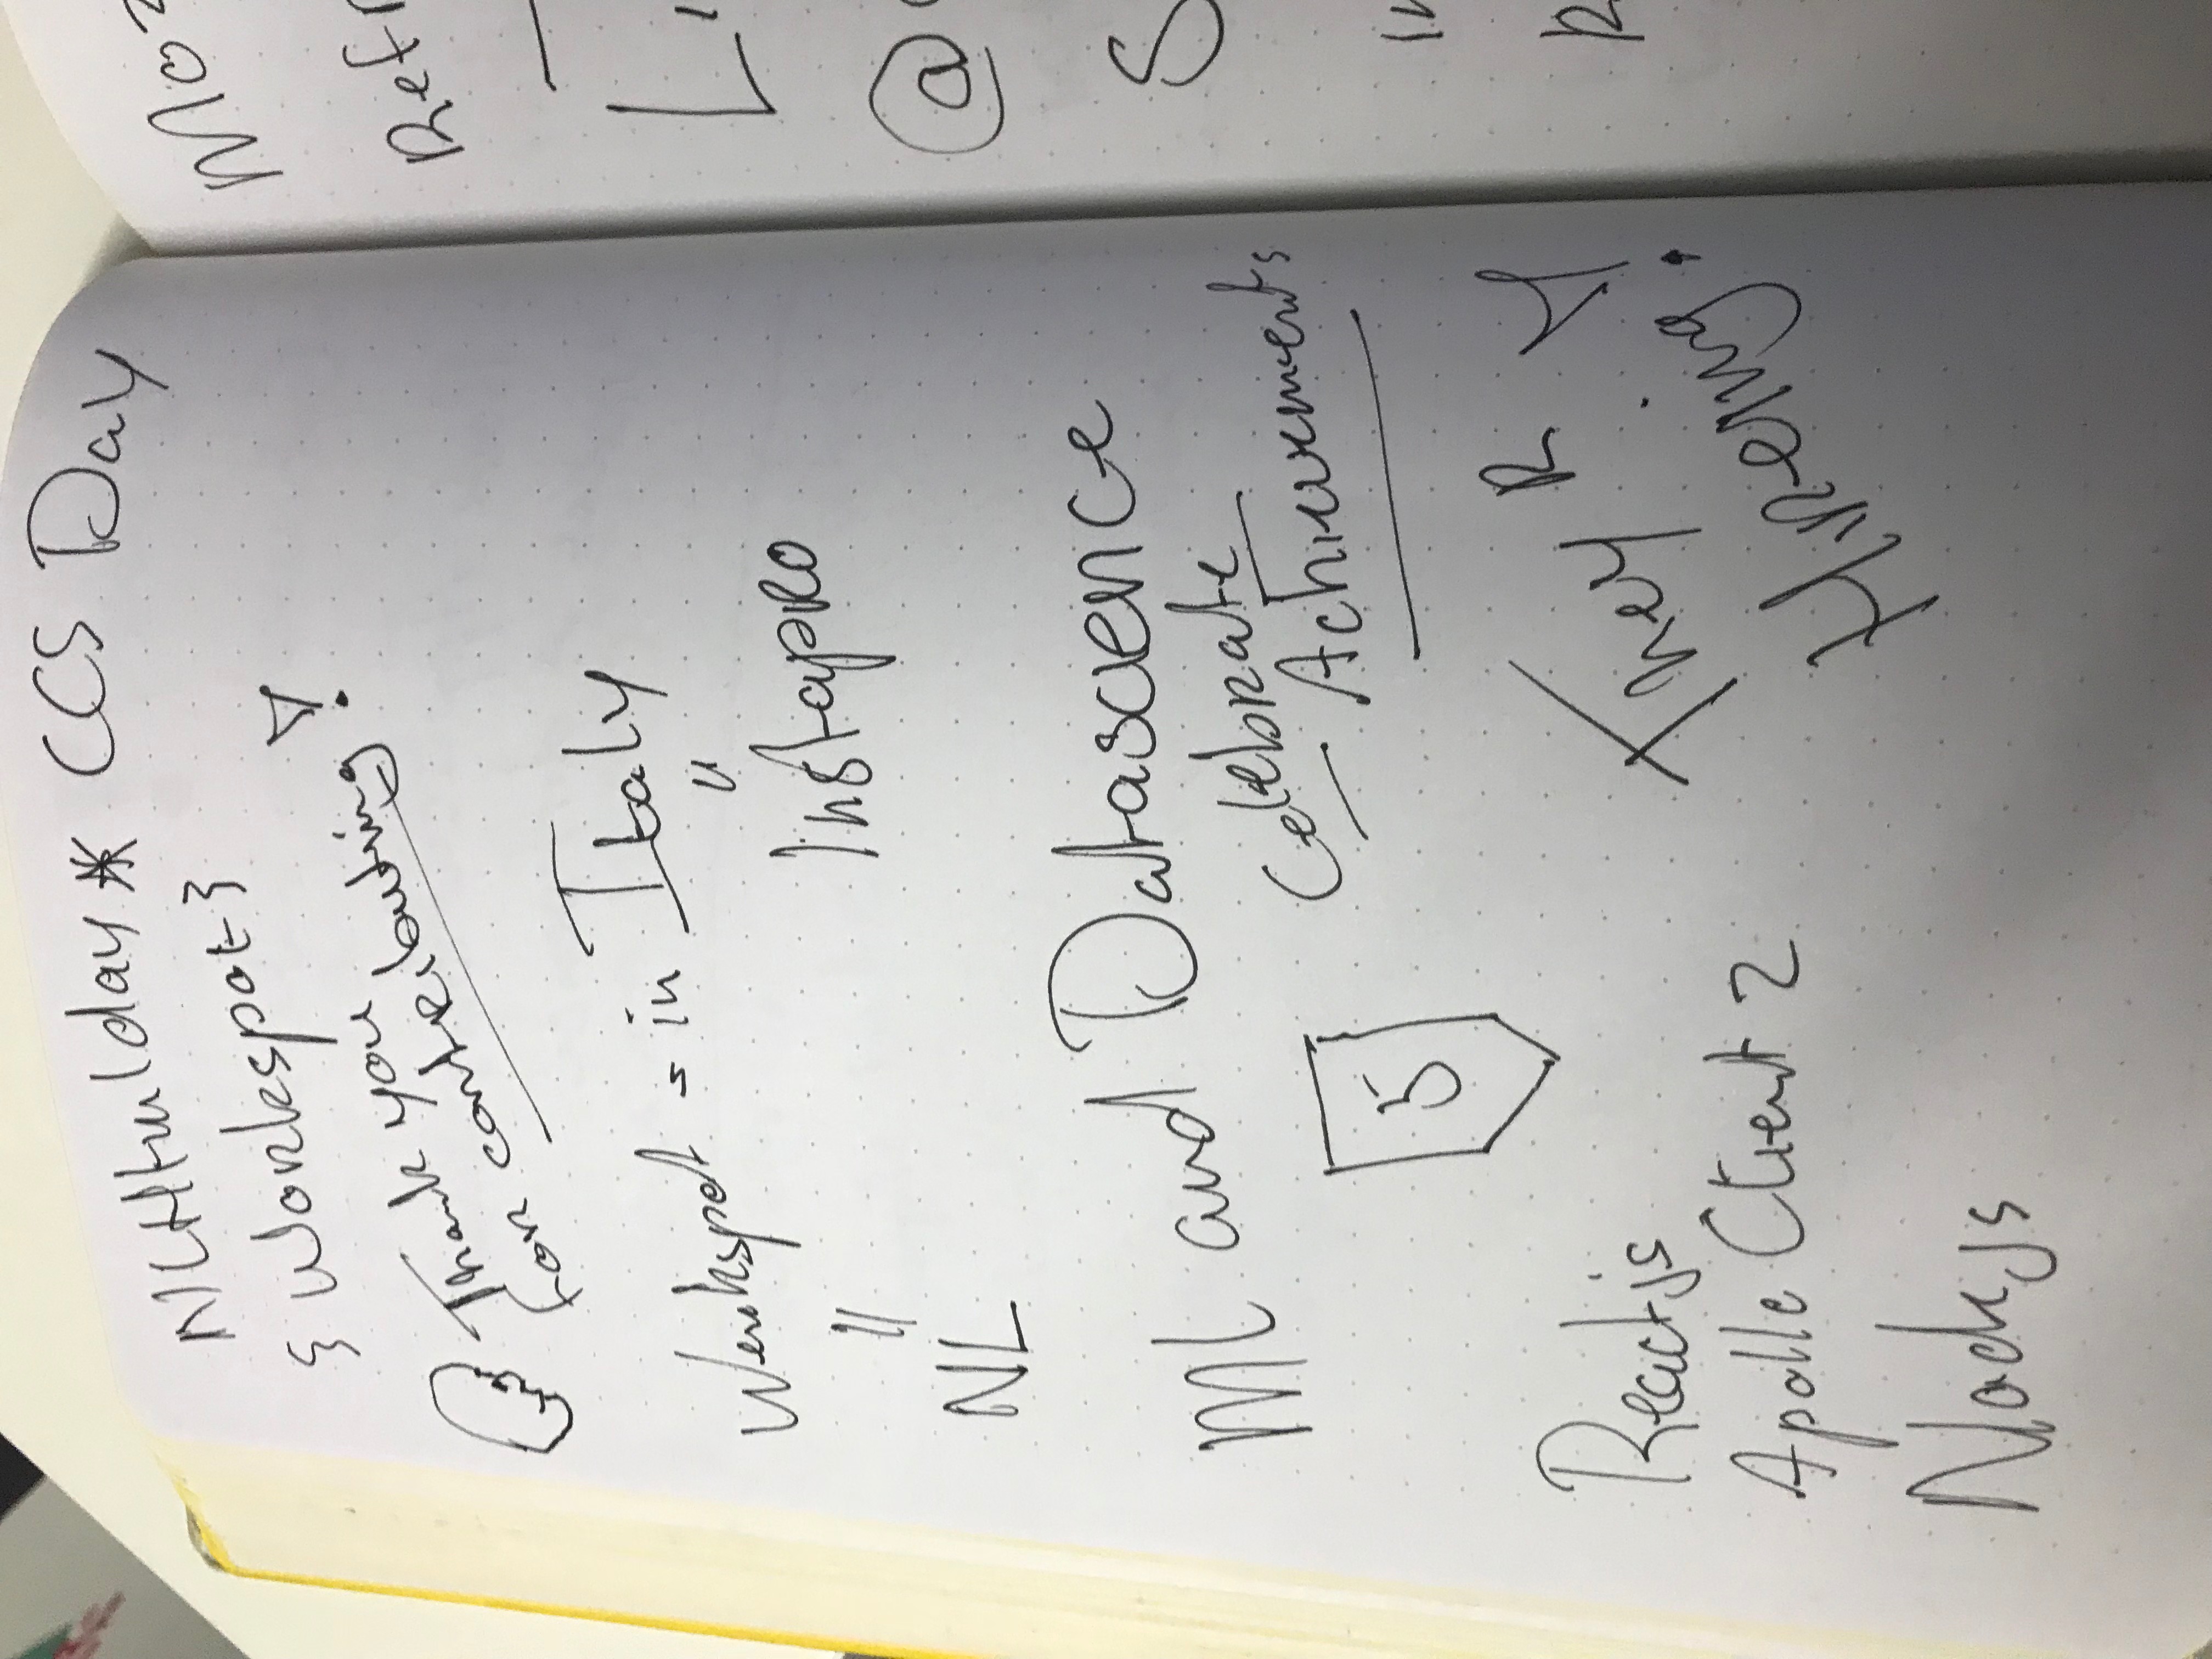 NLHtmlday * CCS Day
{ Workspot }
Thank you
for contributing!
Werkspot = in Italy
"
Instapro
||
NL
ML and Datascience
Celebrate
Achievements
5
They R
Hireing!
Reactjs
Apollo Client 2
Nodejs
Refr
Li
@
S
in
R